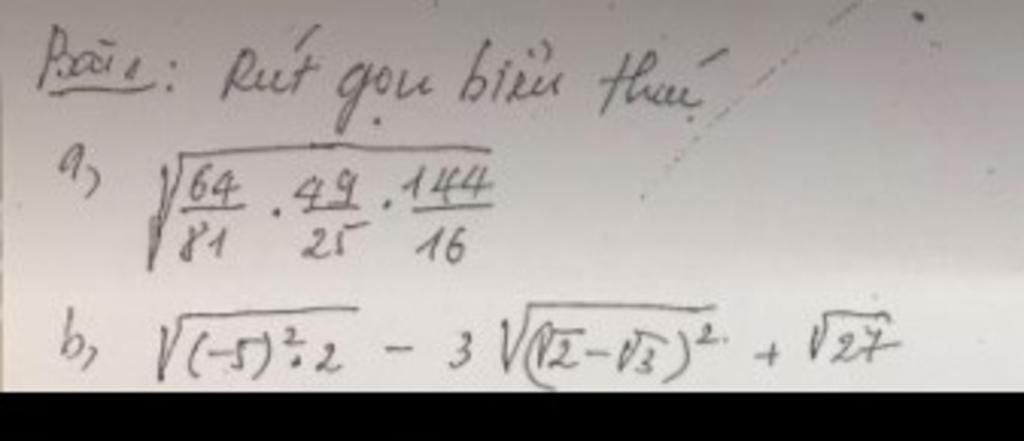 Bài 1: Rút gọn biểu thức
a, √(64/81 . 49/25 . 144/16)
b, √((-5)².2) - 3√((√2-√3)²) + √27